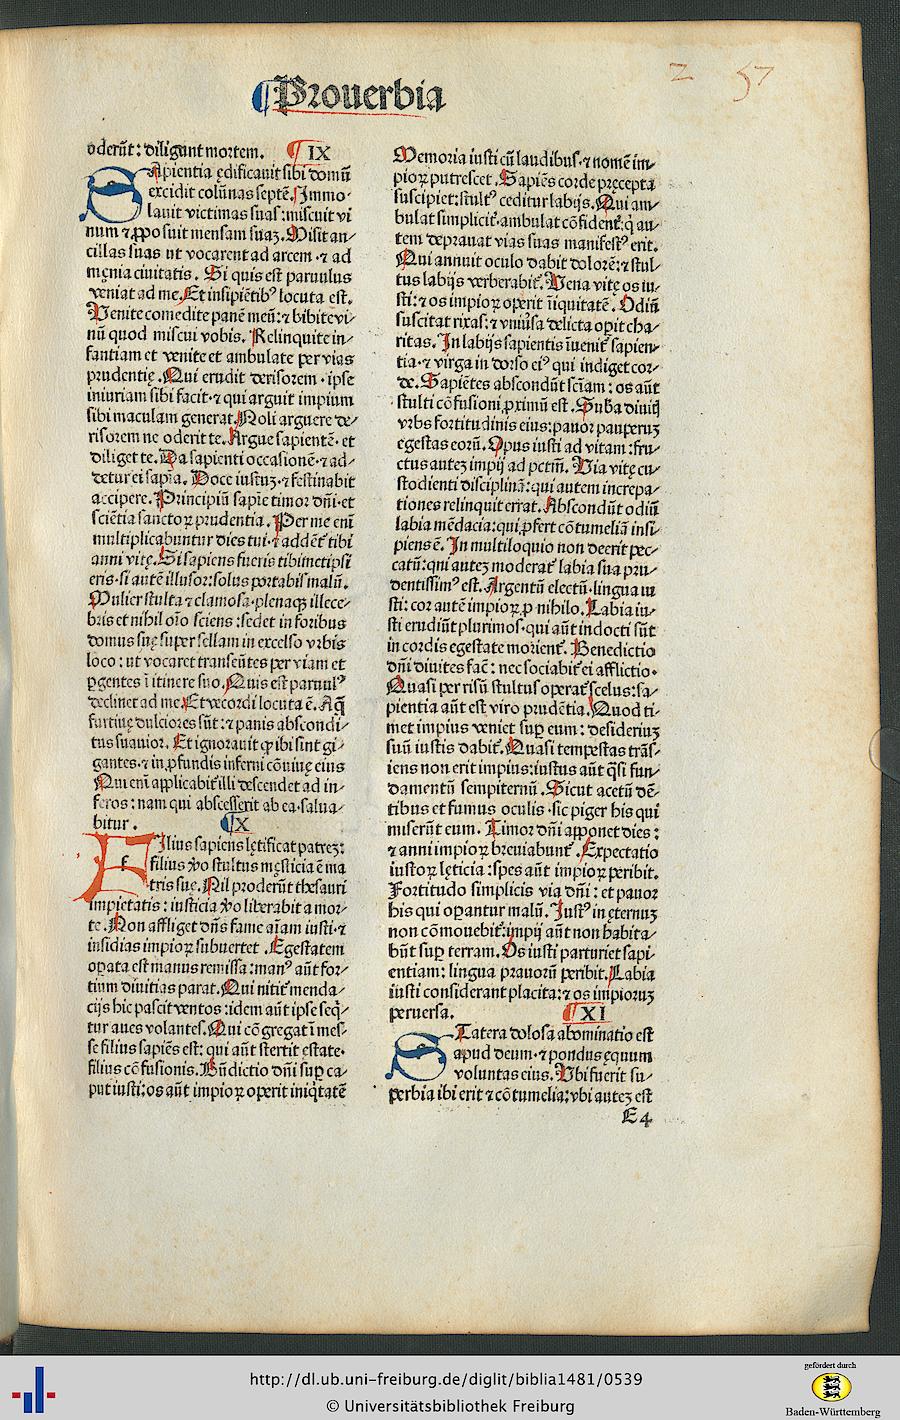 2 57
Prouerbia
oderūt: diligunt mortem. IX
SApientia ędificauit sibi domū
excidit colūnas septē. Immo-
lauit victimas suas: miscuit vi
num ⁊ ꝓposuit mensam suaꝫ. Misit an-
cillas suas ut vocarent ad arcem ⁊ ad
męnia ciuitatis. Si quis est paruulus
veniat ad me. Et insipiētibꝰ locuta est.
Venite comedite panē meū: ⁊ bibite vi-
nū quod miscui vobis. Relinquite in-
fantiam et venite et ambulate per vias
prudentię. Qui erudit derisorem · ipse
iniuriam sibi facit · ⁊ qui arguit impium
sibi maculam generat. Noli arguere de-
risorem ne oderit te. Argue sapientē · et
diliget te. Da sapienti occasionē · ⁊ ad-
detur ei sapīa. Doce iustuꝫ · ⁊ festinabit
accipere. Principiū sapīe timor dn̄i · et
sciētia sanctoꝝ prudentia. Per me enī
multiplicabuntur dies tui · ⁊ addēt᷑ tibi
anni vitę. Si sapiens fueris tibimetipsi
eris · si autē illusor: solus portabis malū.
Mulier stulta ⁊ clamosa · plenaqꝫ illece-
bris et nihil oīo sciens: sedet in foribus
domus suę super sellam in excelso vrbis
loco: ut vocaret transeūtes per viam et
ꝑgentes ī itinere suo. Quis est paruulꝰ
declinet ad me. Et vecordi locuta ē. Aq̄
furtiuę dulciores sūt: ⁊ panis abscondi-
tus suauior. Et ignorauit ꝙ ibi sint gi-
gantes · ⁊ in ꝓfundis inferni cōuiuę eius
Qui enī applicabit᷑ illi descendet ad in-
feros: nam qui abscesserit ab ea · salua-
bitur. X
FIlius sapiens lętificat patreꝫ:
filius ꝟo stultus męsticia ē ma
tris suę. Nil proderūt thesauri
impietatis: iusticia ꝟo liberabit a mor-
te. Non affliget dn̄s fame aīam iusti · ⁊
insidias impioꝝ subuertet. Egestatem
oꝑata est manus remissa: manꝰ aūt for-
tium diuitias parat. Qui nitit᷑ menda-
cijs hic pascit ventos: idem aūt ipse seq̄-
tur aues volantes. Qui cōgregat ī mes-
se filius sapiēs est: qui aūt stertit ęstate ·
filius cōfusionis. Bn̄dictio dn̄i suꝑ ca-
put iusti: os aūt impioꝝ operit iniq̇tatē
Memoria iusti cū laudibus · ⁊ nomē im-
pioꝝ putrescet. Sapiēs corde pręcepta
suscipiet: stultꝰ ceditur labijs. Qui am-
bulat simplicit᷑ · ambulat cōfident᷑: q̇ au-
tem deprauat vias suas manifestꝰ erit.
Qui annuit oculo dabit dolorē: ⁊ stul-
tus labijs verberabit᷑. Vena vitę os iu-
sti: ⁊ os impioꝝ operit īiquitatē. Odiū
suscitat rixas: ⁊ vniūsa delicta oꝑit cha-
ritas. In labijs sapientis īuenit᷑ sapien-
tia · ⁊ virga in dorso eiꝰ qui indiget cor-
de. Sapiētes abscondūt scīam: os aūt
stulti cōfusioni ꝓximū est. Suba diuitꝭ
vrbs fortitudinis eius: pauor pauperuꝫ
egestas eorū. Opus iusti ad vitam: fru-
ctus auteꝫ impij ad pctm̄. Via vitę cu-
stodienti disciplinā: qui autem increpa-
tiones relinquit errat. Abscondūt odiū
labia mēdacia: qui ꝓfert cōtumeliā insi-
piens ē. In multiloquio non deerit pec-
catū: qui auteꝫ moderat᷑ labia sua pru-
dentissimꝰ est. Argentū electū · lingua iu
sti: cor autē impioꝝ ꝓ nihilo. Labia iu-
sti erudiūt plurimos · qui aūt indocti sūt
in cordis egestate morient᷑. Benedictio
dn̄i diuites fac̄: nec sociabit᷑ ei afflictio ·
Quasi per risū stultus operat᷑ scelus: sa-
pientia aūt est viro prudētia. Quod ti-
met impius veniet suꝑ eum: desideriuꝫ
suū iustis dabit᷑. Quasi tempestas trās-
iens non erit impius: iustus aūt q̄si fun-
damentū sempiternū. Sicut acetū dē-
tibus et fumus oculis · sic piger his qui
miserūt eum. Timor dn̄i apponet dies:
⁊ anni impioꝝ breuiabunt᷑. Expectatio
iustoꝝ lęticia: spes aūt impioꝝ peribit.
Fortitudo simplicis via dn̄i: et pauor
his qui oꝑantur malū. Iustꝰ in ęternuꝫ
non cōmouebit᷑: impij aūt non habita-
būt suꝑ terram. Os iusti parturiet sapi-
entiam: lingua prauorū peribit. Labia
iusti considerant placita: ⁊ os impioruꝫ
peruersa. XI
STatera dolosa abominatio est
apud deum · ⁊ pondus ęquum
voluntas eius. Vbi fuerit su-
perbia ibi erit ⁊ cōtumelia: vbi auteꝫ est
E4
http://dl.ub.uni-freiburg.de/diglit/biblia1481/0539
© Universitätsbibliothek Freiburg
gefördert durch
Baden-Württemberg